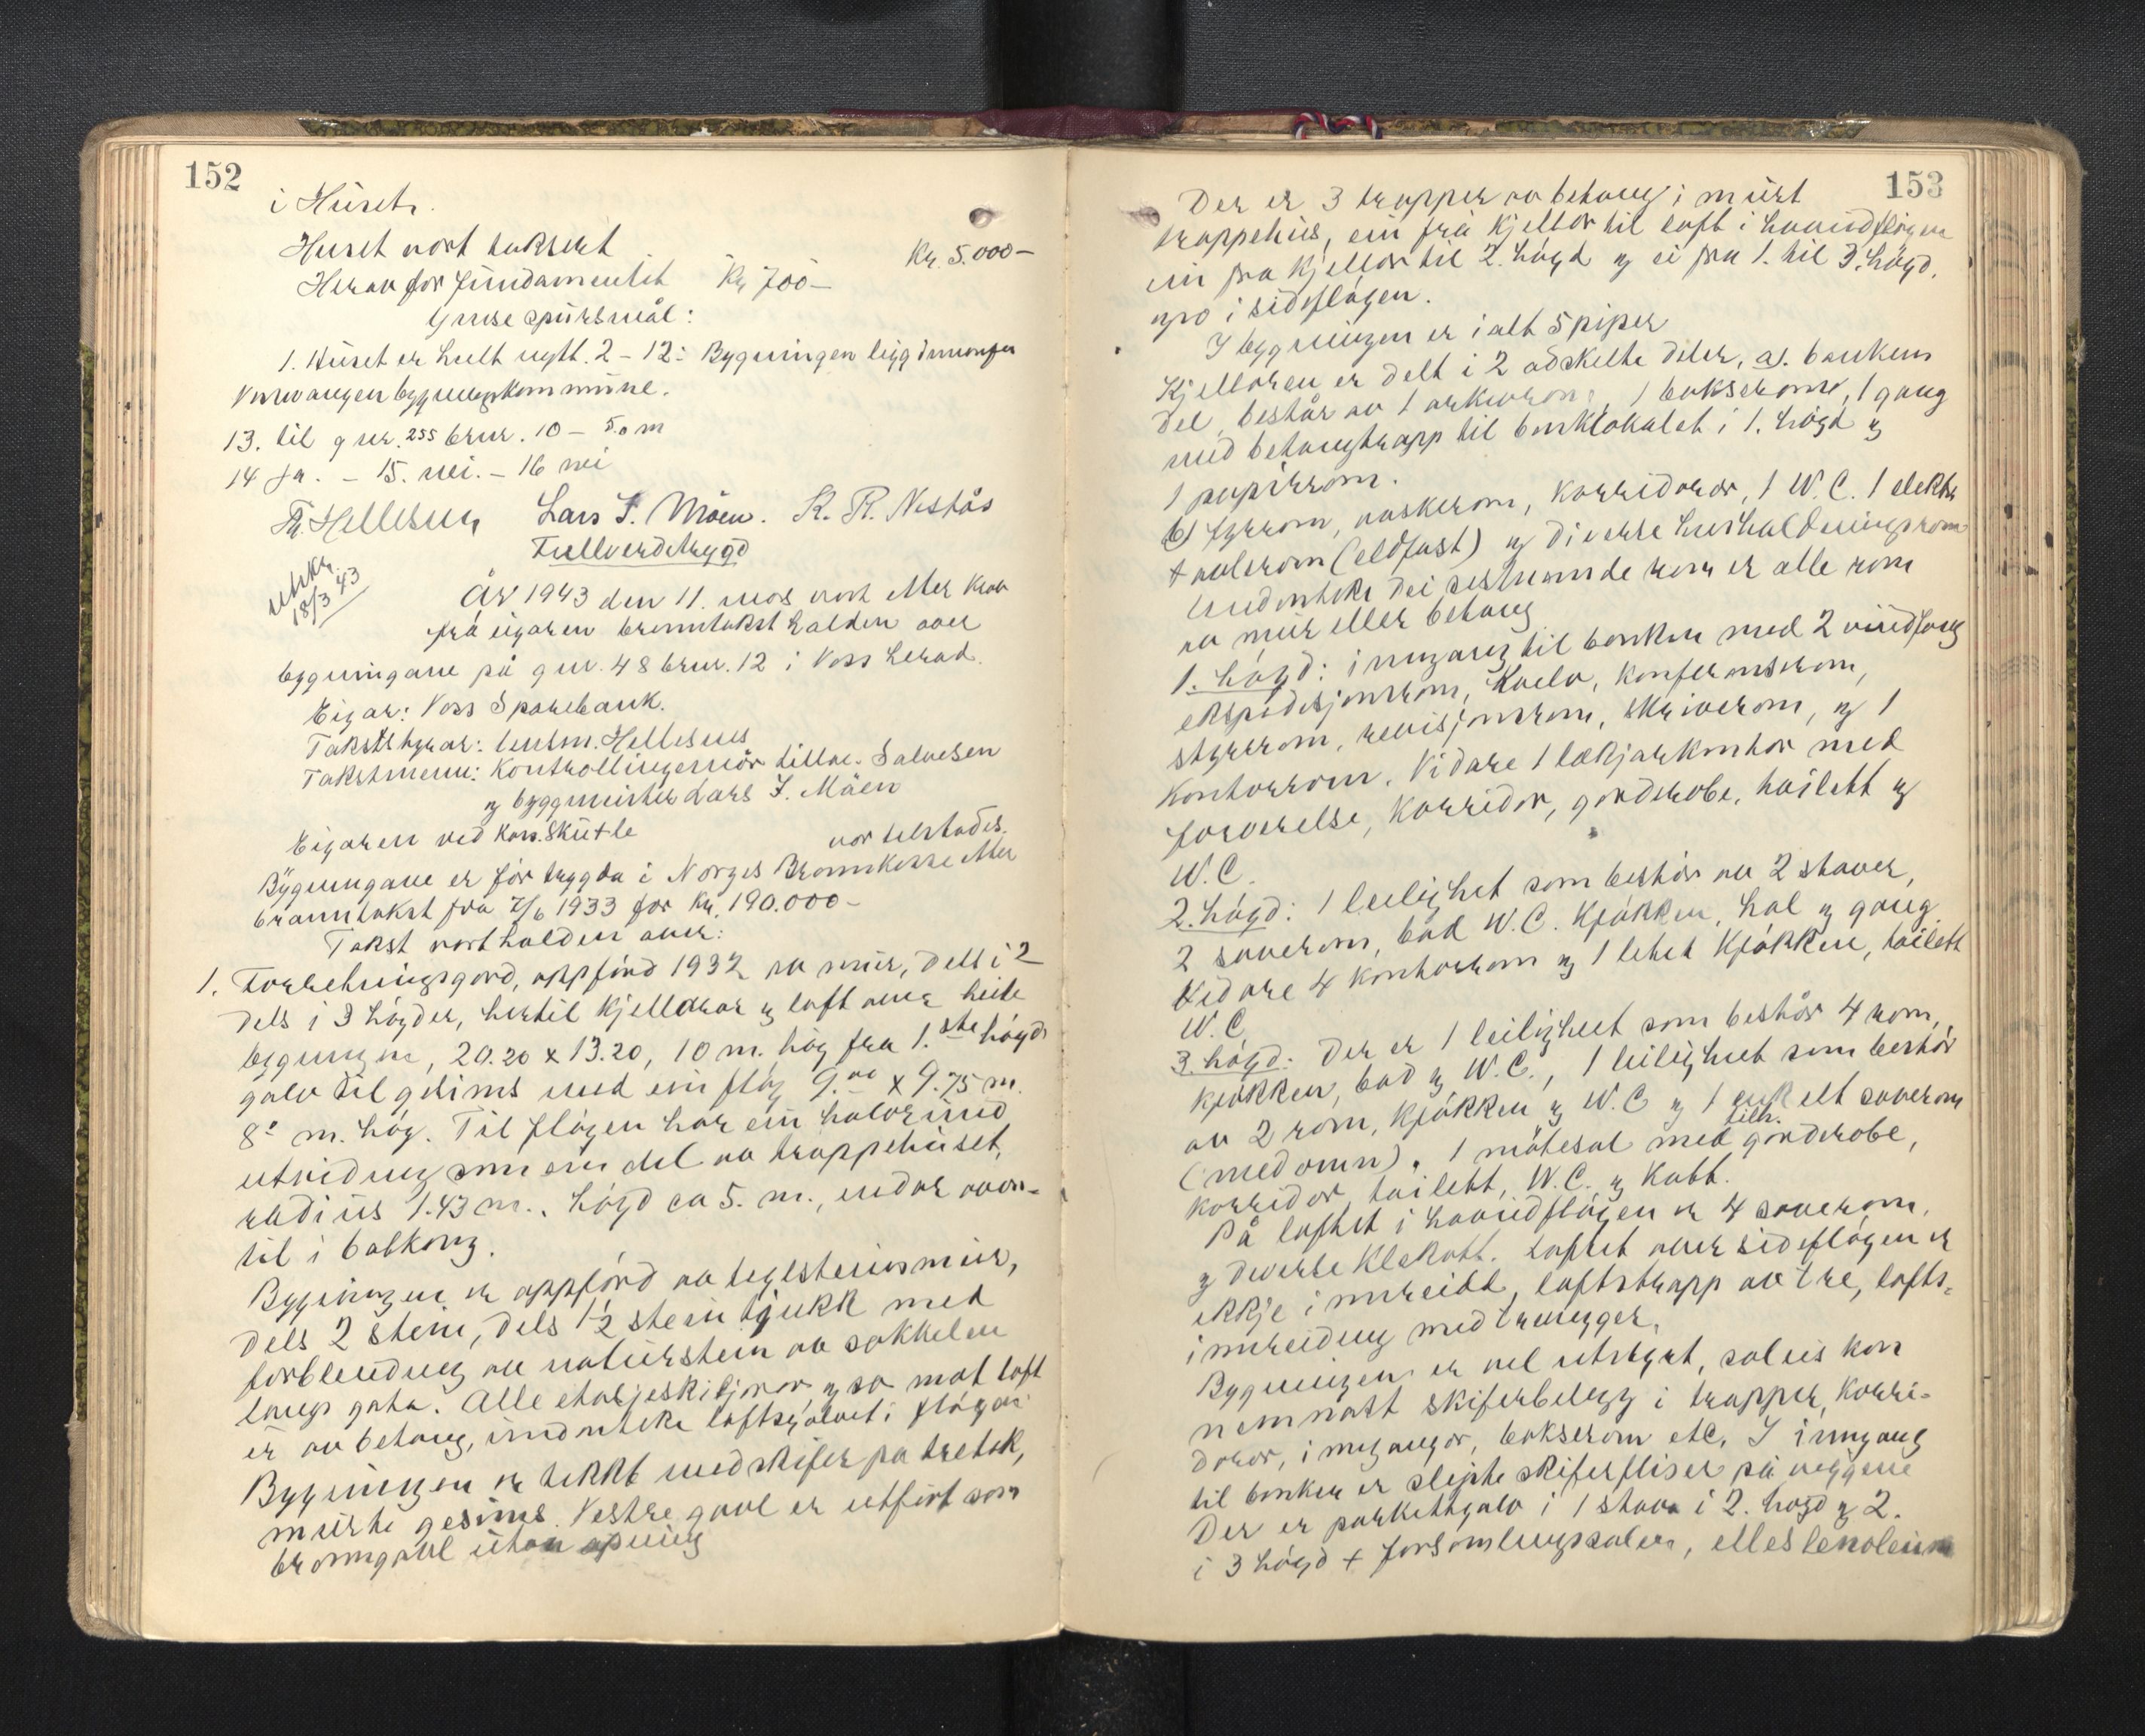 152
i Huset.
Huset vort taksert Kr. 5.000-
Herav for fundamentet Kr 700-
Ymse spursmål:
1. Huset er helt nytt. 2 - 12: Bygningen ligg innanfor
Vossevangen bygningskommune.
13. til gnr. 255 brnr. 10 - 50 m
14 Ja. - 15. nei. - 16 nei
Hellesnes Lars J. Möen. K. R. Nestås
Fullverdetrygd
utskr.
18/3 43
År 1943 den 11. mars vort etter krav
frå eigaren branntakst halden over
bygningane på gnr. 48 brnr. 12 i Voss herad.
Eigar: Voss Sparebank.
Takststyrar: lensm. Hellesnes
Takstmenn: Kontrollingeniør Salvesen
og byggmeister Lars J. Möen
Eigaren ved Kass. Skutle var tilstades.
Bygningane er før trygda i Norges Brannkasse etter
branntakst fra 7/6 1933 for Kr. 190.000-
Takst vart halden over:
1. Forretningsgard, oppförd 1932 av mur, dels i 2
dels i 3 högder, hertil kjellarar og loft over heile
bygningen, 20.20 x 13.20, 10 m. hög fra 1.ste högds
golv til gesims med ein flög 9.00 x 9.75 m.
8.0 m. hög. Til flögen hör ein halvrund
utviding som ein del av trappehuset,
radius 1.43 m., högd ca 5. m., endar oven-
til i balkong.
Bygningen er oppförd av teglsteinsmur,
dels 2 stein, dels 1½ stein tjukk med
forblending av naturstein av sokkelen
langs gata. Alle etasjeskiljorar og so mot loft
er av betong, undanteke loftsgolvet i flögen
Bygningen er tekkt med skifer på tretak,
murte gesims. Vestre gavl er utfört som
branngavl utan opning
153
Der er 3 trapper av betong i murt
trappehus, ein frå kjellar til loft i hovudflögen
ein fra kjellar til 2. högd og ei fra 1. til 3. högd.
i sideflögen.
I bygningen er i alt 5 piper
Kjellaren er delt i 2 adskilte deler, a). bankens
del, består av 1 arkivrom, 1 bokserom, 1 gang
med betongtrapp til banklokalet i 1. högd og
1 papirrom.
b) fyrrom, vaskerom, korridorar, 1 W.C. 1 elektr
tavlerom (eldfast) og diverse hushaldningsrom
Undanteke dei sistnemnde rom er alle rom
av mur eller betong
1. högd: inngang til banken med 2 vindfang
ekspedisjonsrom, kvelv, konferanserom,
styrerom, revisjonsrom, skriverom, og 1
kontorrom. Vidare 1 lækjarkontor med
forverelse, korridor, garderobe, toilett og
W.C.
2. högd: 1 leilighet som består av 2 stover,
2 soverom, bad W.C. kjökken, hal og gang.
Vidare 4 kontorrom og 1 litet kjökken, toilett
W.C
3. högd: Der er 1 leilighet som består 4 rom,
kjökken, bad og W.C., 1 leilighet som består
av 2 rom, kjökken og W.C og 1 enkelt soverom
(med omn). 1 mötesal med tilh. garderobe,
korridor, toilett, W.C. og Kott.
På loftet i hovudflögen er 4 soverom,
og diverse Klekott. Loftet over sideflögen er
ikkje innreidd, loftstrapp av tre, lofts-
innreiding med trevegger.
Bygningen er vel utstyrt, soleis kan
nemnast skiferbelegg i trapper, korri-
dorar, inngangar, bokserom etc. I inngang
til banken er slipte skiferfliser på veggene
Der er parkettgolv i 1 stova i 2. högd og 2.
i 3 högd + forsamlingssalen, elles linoleum